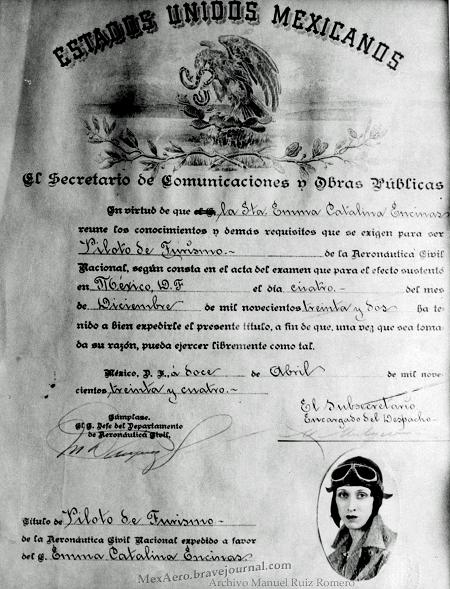 ESTADOS UNIDOS MEXICANOS
El Secretario de Comunicaciones y Obras Públicas
En virtud de que el C. la Sta. Emma Catalina Encinas
reune los conocimientos y demás requisitos que se exigen para ser
Piloto de Turismo.- de la Aeronáutica Civil
Nacional, según consta en el acta del examen que para el efecto sustentó
en México, D.F. el día cuatro.- del mes
de Diciembre de mil novecientos treinta y dos ha te-
nido a bien expedirle el presente título, a fin de que, una vez que sea toma-
da su razón, pueda ejercer libremente como tal.
México, D. F., a doce de Abril de mil nove-
cientos treinta y cuatro.-
El Subsecretario
Encargado del Despacho.-
Cúmplase.
El C. Jefe del Departamento
de Aeronáutica Civil,
Título de Piloto de Turismo.-
de la Aeronáutica Civil Nacional expedido a favor
del C. Emma Catalina Encinas
MexAero.bravejournal.com
Archivo Manuel Ruiz Romero